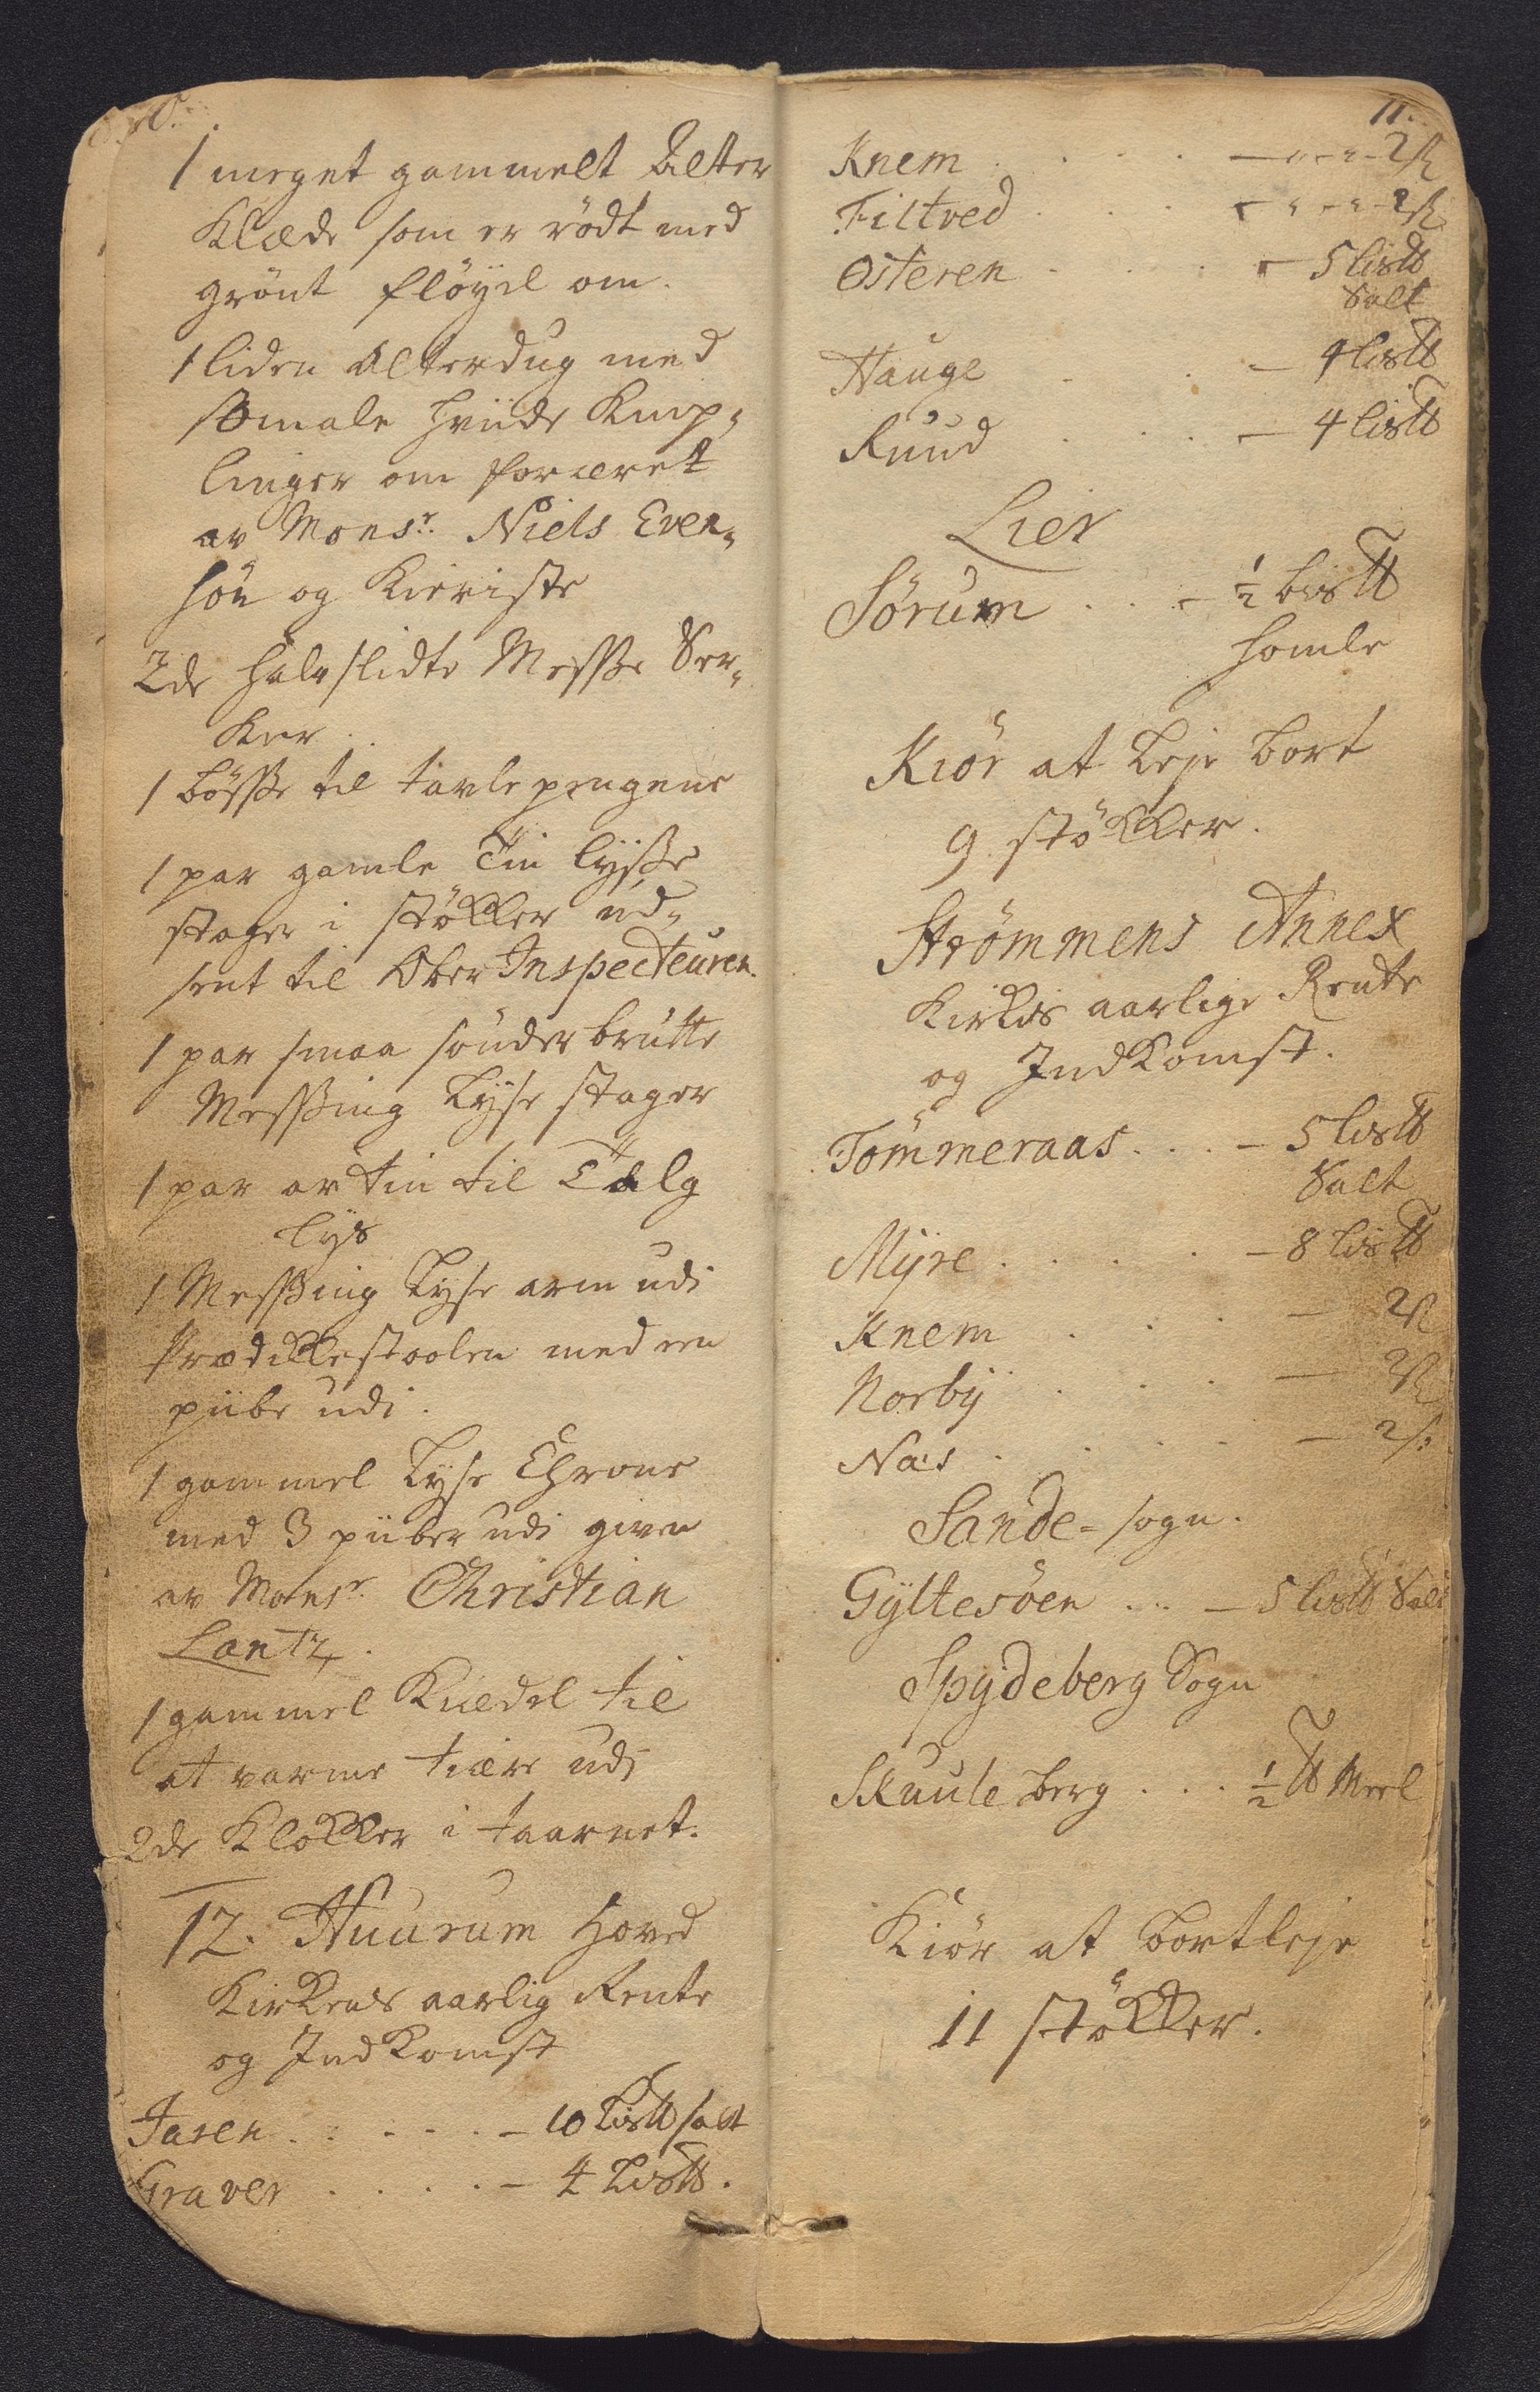 1 meget gammelt Alter
Klæde som er rödt med
grönt flöyel om.
1 liden Alterdug med
smale hviide Knip¬
linger om foræret
av Monsr. Niels Even¬
sön og Kieriste
2de halvslidte Messse Ser¬
ker.
1 bösse til tavle pengene
1 par gamle Tin lysse
stager i stökker ud¬
sent til Ober Inspecteuren.
1 par smaa sönder brutte
Messing Lyse stager
1 par av tin til Talg
lys
1 Messing Lyse arm udi
Prædikkestoolen med en
piibe udi.
1 gammel Lyse Chrone
med 3 piiber udi given
av Monsr. Christian
Lantz.
1 gammel Kiedel til
at varme tiære udi
2de Klokker i taarnet.
12. Huurum Hoved
Kirkens aarlig Rente
og Indkomst
Jasen . . . . . - 10 Lis℔ salt
Graver . . . . - 4 Lis℔.
11.
Knem . . . . - - - - 2 ß
Filtved . . . - - - - 2 ß
Osteren . . . - 5 lis℔
Salt
Hauge . . . - 4 lis℔
Ruud . . . - 4 lis℔
Lier
Sörum . . . - ½ bis℔
homle
Kiör at leje bort
9 stökker.
Strömmens Annex
Kirkes aarlige Rente
og Indkomst.
Tömmeraas . . . - 5 lis℔
Salt
Myre . . . . . - 8 lis℔
Knem . . . . - 2 ß
Norby . . . - 2 ß
Næs . . . . - 2 ß
Sande = sogn.
Gyltesöen . . . - 5 lis℔ Salt
Spydeberg Sogn
Skuule berg . . . ½ ℔ Meel
Kiör at bortleje
11 stökker.